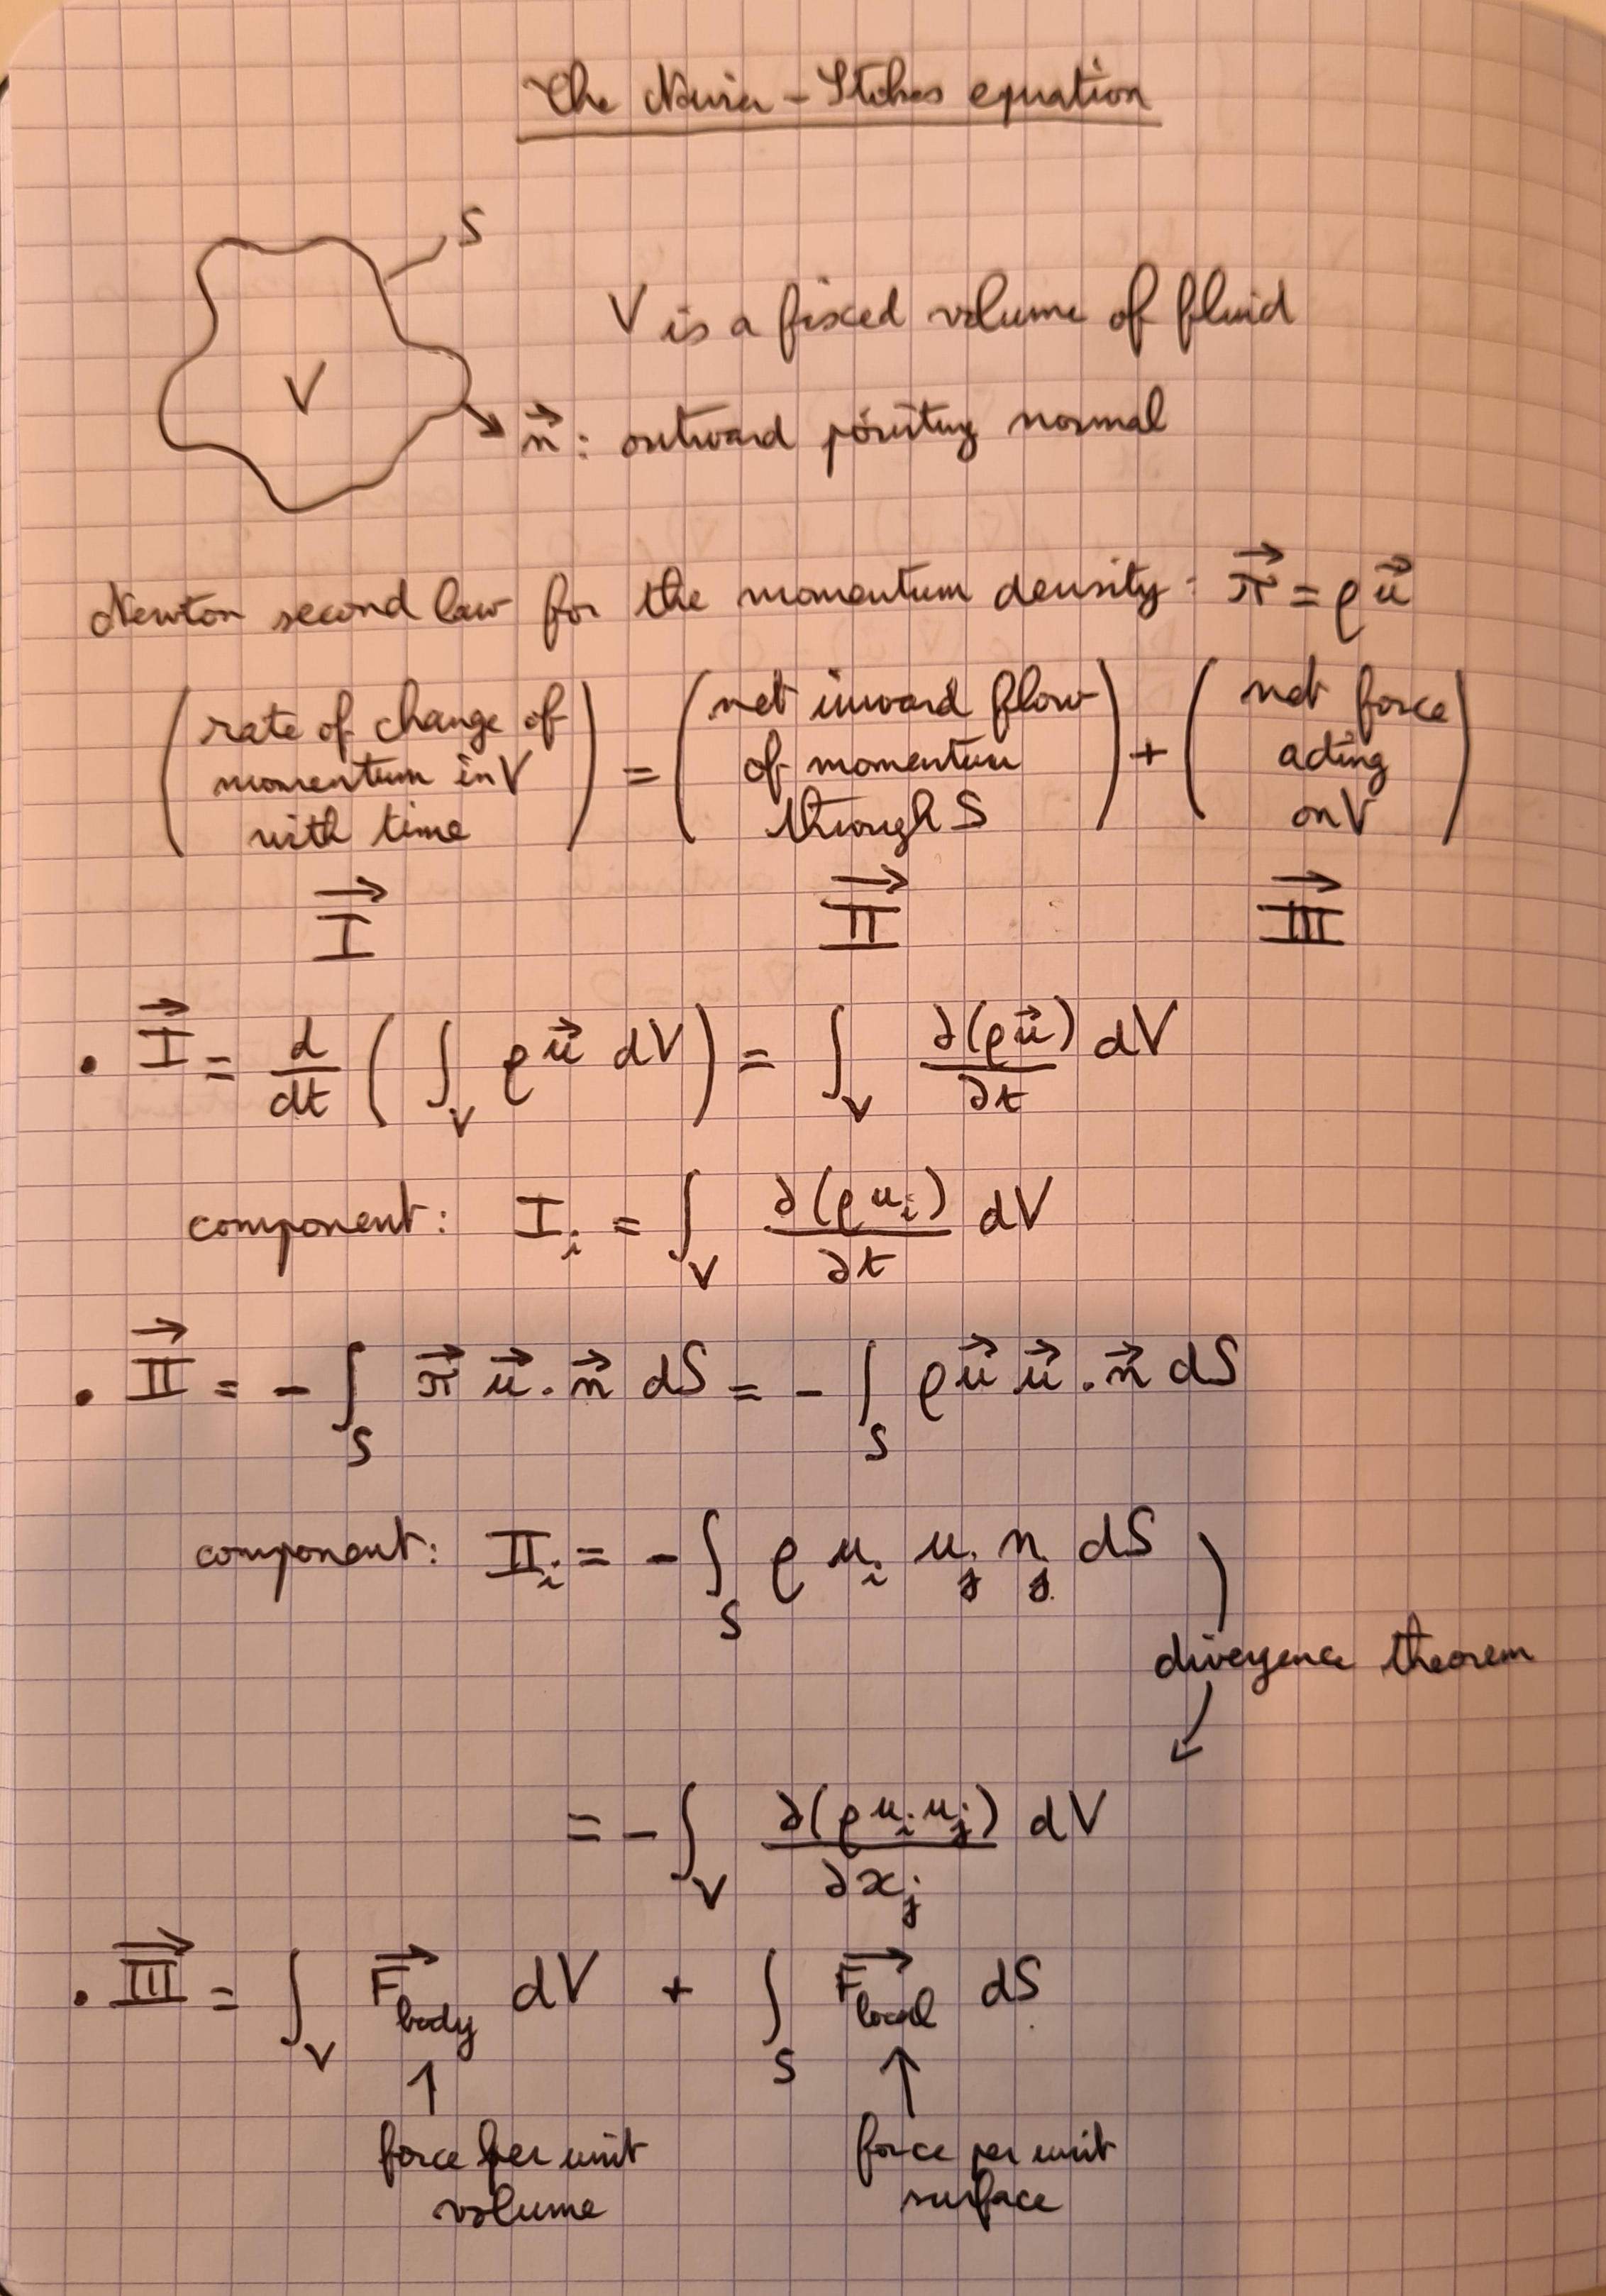 The Navier-Stokes equation
S
V is a fixed volume of fluid
V
n⃗ : outward pointing normal
Newton second law for the momentum density : π⃗ = ρu⃗
(rate of change of momentum in V with time) = (net inward flow of momentum through S) + (net force acting on V)
I⃗ II⃗ III⃗
• I⃗ = d/dt ( ∫_V ρu⃗ dV ) = ∫_V ∂(ρu⃗)/∂t dV
component: I_i = ∫_V ∂(ρu_i)/∂t dV
• II⃗ = - ∫_S π⃗ u⃗ . n⃗ dS = - ∫_S ρu⃗ u⃗ . n⃗ dS
component: II_i = - ∫_S ρ u_i u_j n_j dS
divergence theorem
= - ∫_V ∂(ρu_i u_j)/∂x_j dV
• III⃗ = ∫_V F⃗_body dV + ∫_S F⃗_local dS
↑ ↑
force per unit volume
force per unit surface